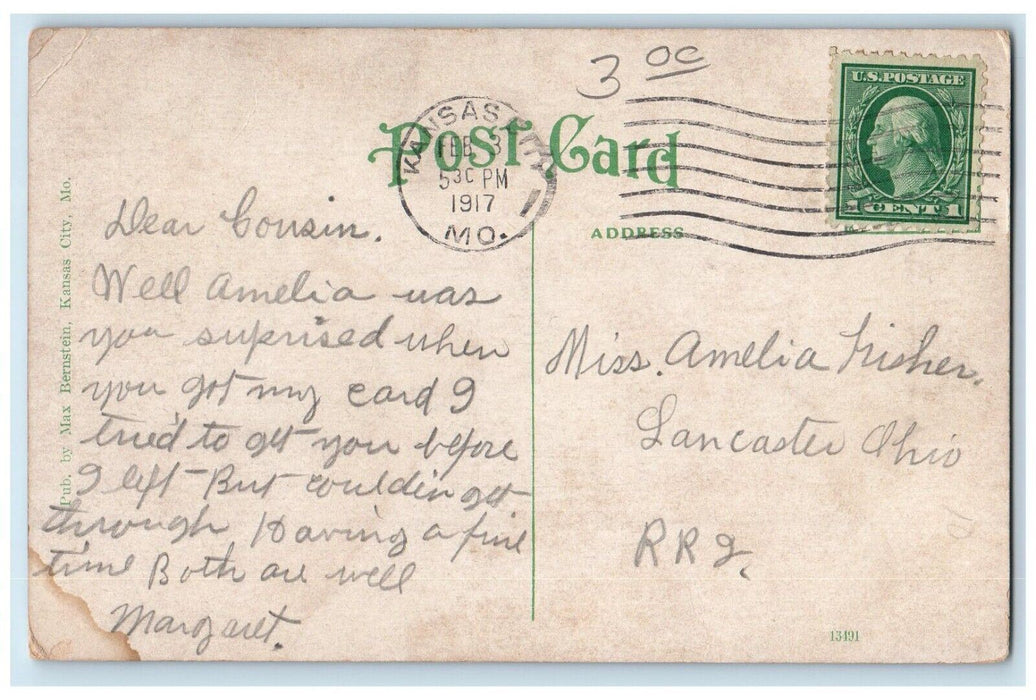 3 00
U.S.POSTAGE
1 CENT 1
KANSAS CITY
FEB 3
530 PM
1917
MO.
1
Post Card
ADDRESS
Pub. by Max Bernstein, Kansas City, Mo.
Dear Cousin.
Well Amelia was
you suprised when
you got my card I
tried to get you before
I left But couldin get
through, Having a fine
time Both are well
Margaret.
Miss. Amelia Fisher.
Lancaster Ohio
RR2.
13491